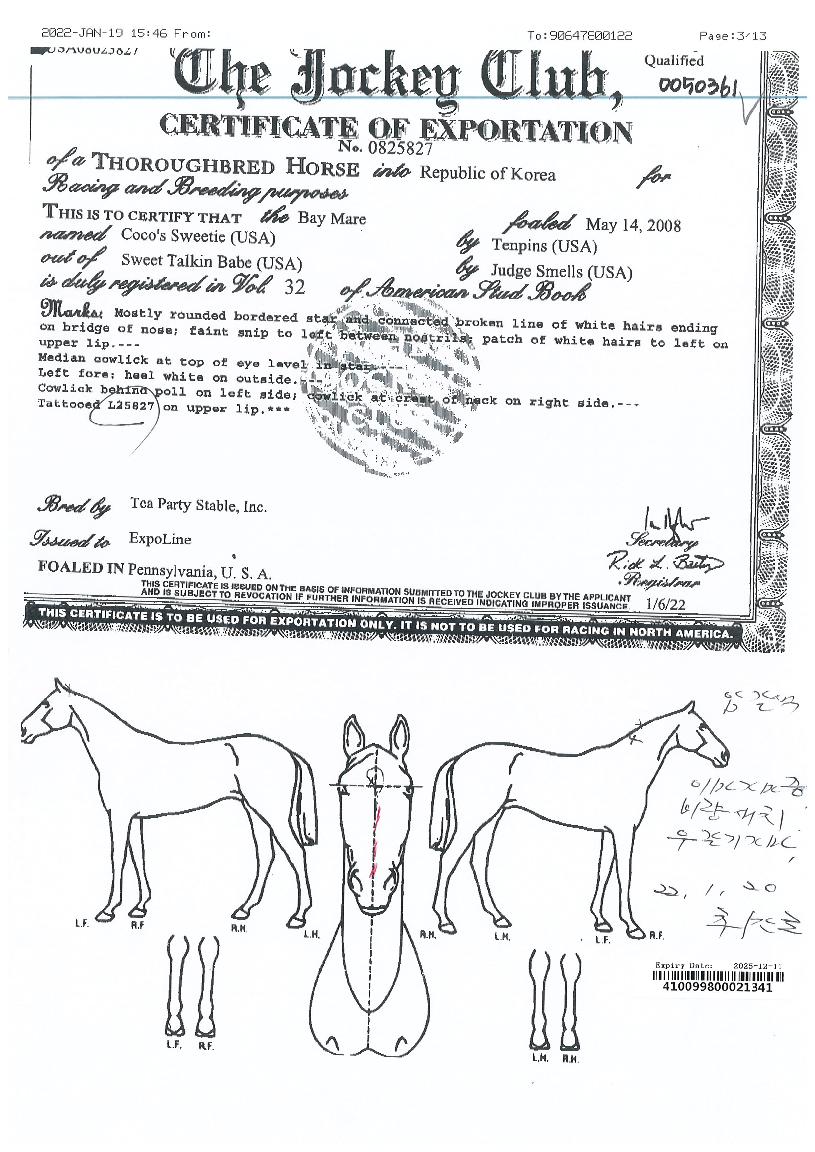 2022-JAN-19 15:46 From: To:90647800122 Page:3/13
The Jockey Club,
Qualified
0050361
CERTIFICATE OF EXPORTATION
No. 0825827
of a THOROUGHBRED HORSE into Republic of Korea for
Racing and Breeding purposes
THIS IS TO CERTIFY THAT the Bay Mare foaled May 14, 2008
named Coco's Sweetie (USA) by Tenpins (USA)
out of Sweet Talkin Babe (USA) by Judge Smells (USA)
is duly registered in Vol. 32 of American Stud Book
Marks: Mostly rounded bordered star and connected broken line of white hairs ending
on bridge of nose; faint snip to left between nostrils; patch of white hairs to left on
upper lip.---
Median cowlick at top of eye level in star.---
Left fore: heel white on outside.---
Cowlick behind poll on left side; cowlick at crest of neck on right side.---
Tattooed L25827 on upper lip.***
Bred by Tea Party Stable, Inc.
Issued to ExpoLine
Secretary
FOALED IN Pennsylvania, U. S. A.
Registrar
THIS CERTIFICATE IS ISSUED ON THE BASIS OF INFORMATION SUBMITTED TO THE JOCKEY CLUB BY THE APPLICANT
AND IS SUBJECT TO REVOCATION IF FURTHER INFORMATION IS RECEIVED INDICATING IMPROPER ISSUANCE. 1/6/22
THIS CERTIFICATE IS TO BE USED FOR EXPORTATION ONLY. IT IS NOT TO BE USED FOR RACING IN NORTH AMERICA.
22. 1. 20
L.F. R.F R.H. L.H. R.H. L.H. L.F. R.F.
Expiry Date: 2025-12-11
410099800021341
L.F. R.F. L.H. R.H.